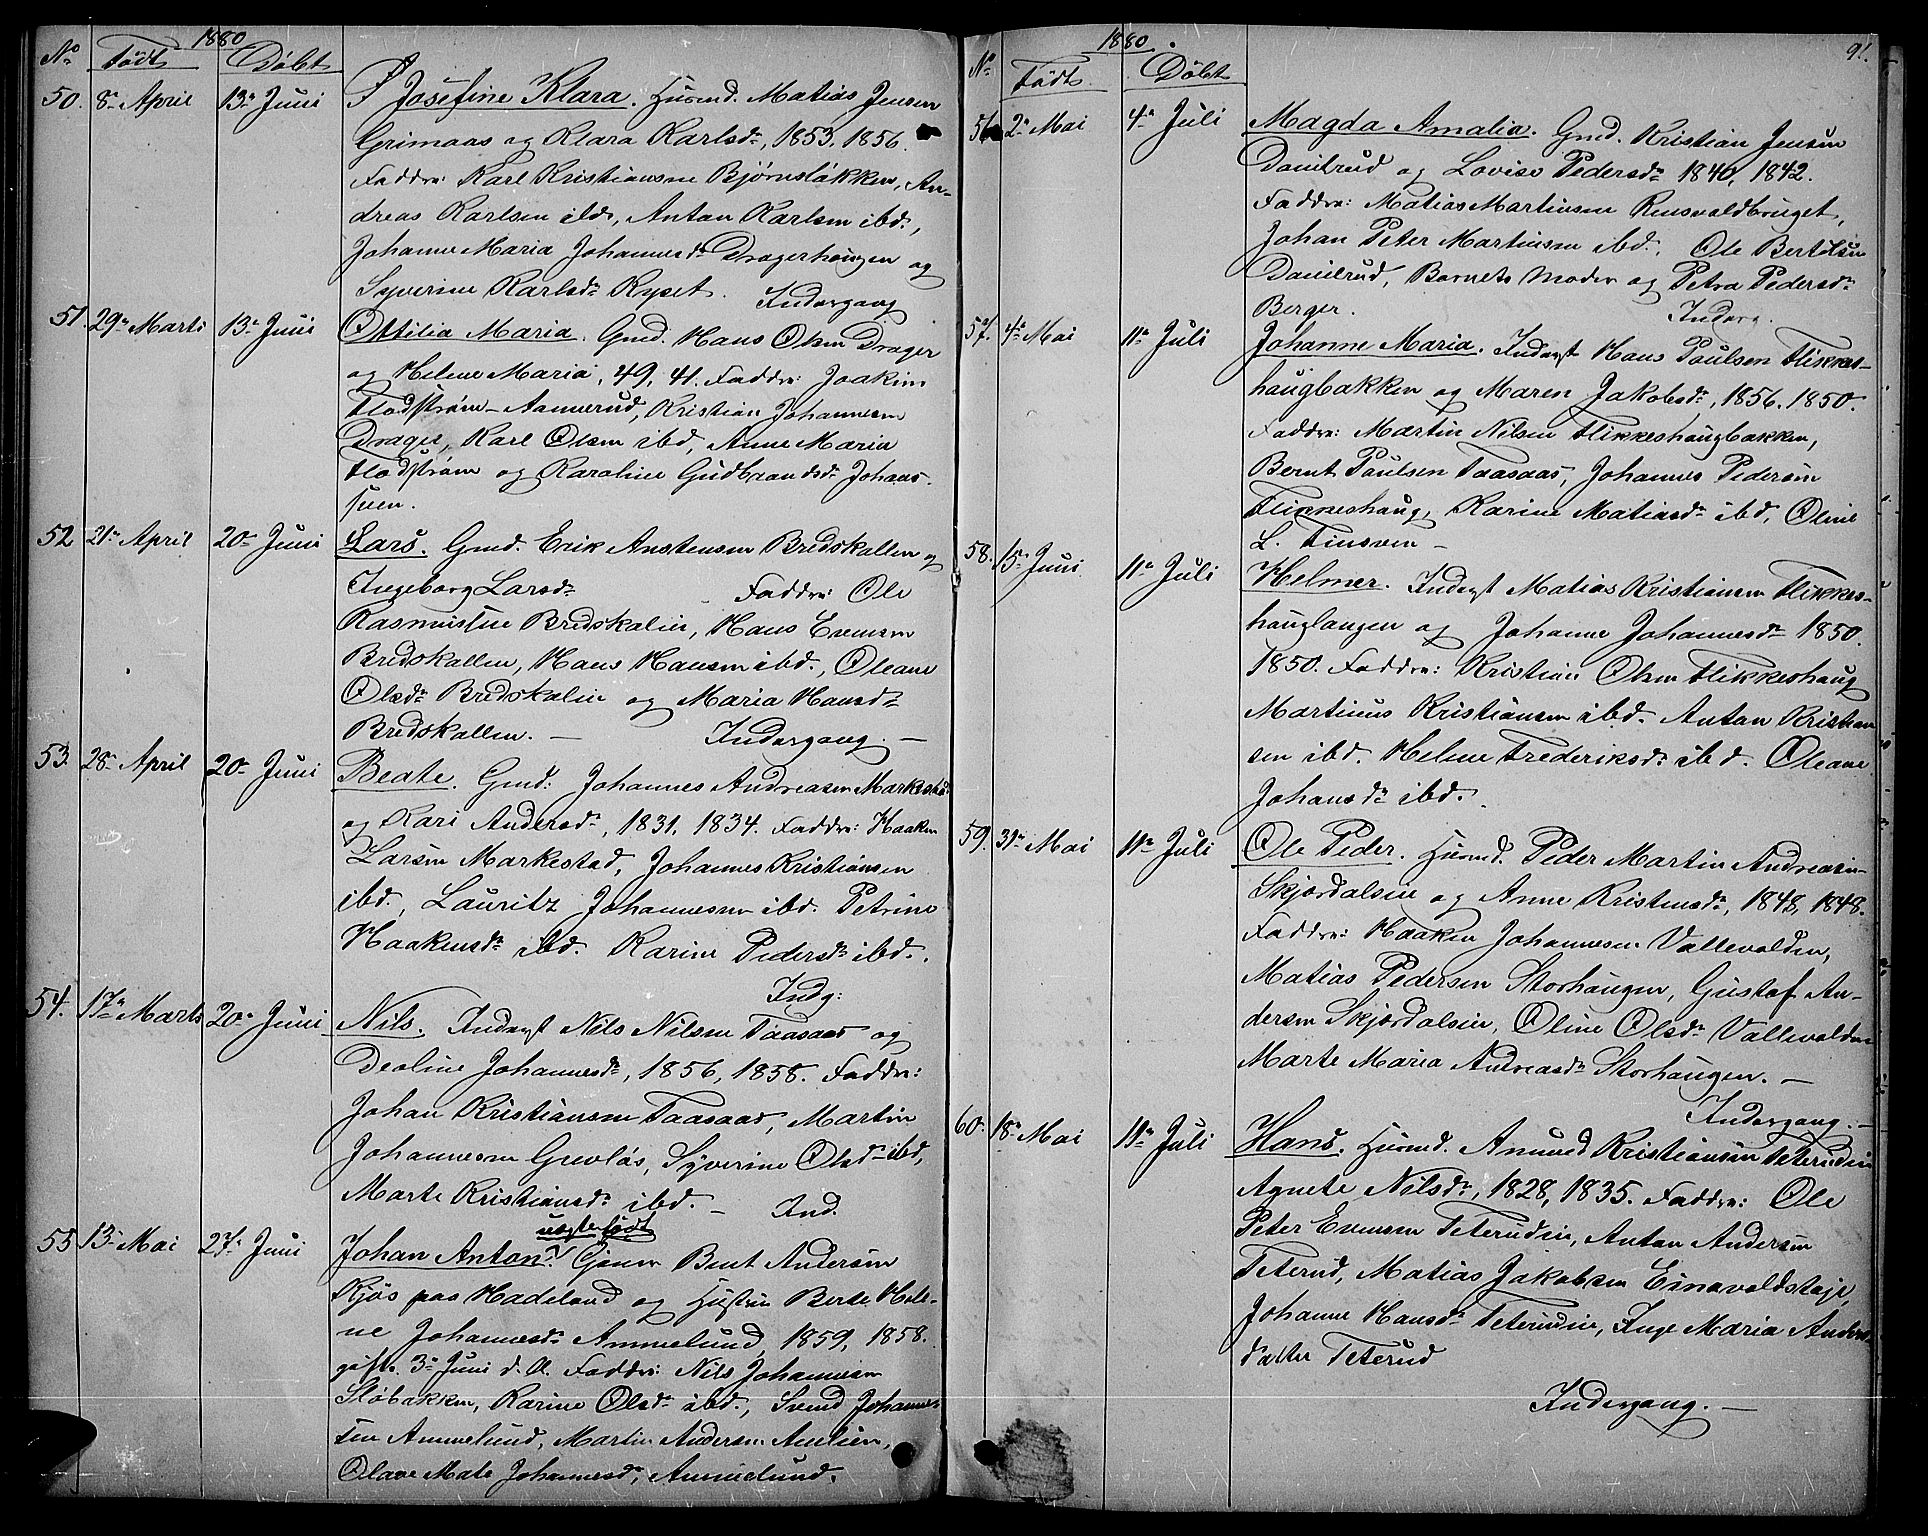 1880
No Födt Döbt
50. 8de April 13de Juni Josefine Klara. Husmd. Matias Jensen
Grimaas og Klara Karlsdr, 1853, 1856.
Faddre: Karl Kristiansen Bjørnsløkken, An-
dreas Karlsen ibd, Anton Karlsen ibd,
Johanne Maria Johannesdr Dragerhaugen og
Syverine Karlsdr Ryset. Indergang
51. 29de Marts 13de Juni Ottilia Maria. Gmd. Hans Olsen Drager
og Helene Maria, 49, 41. Faddre: Joakim
Flodstrøm Aannerud, Kristian Johannesen
Drager, Karl Olsen ibd, Anne Maria
Flodstrøm og Karoline Gudbrandsdr Johans-
sveen.
52 21de April 20de Juni Lars. Gmd. Erik Anstensen Bredskallen og
Ingeborg Larsdr Faddre: Ole
Rasmussen Bredskalien, Hans Evensen
Bredskallen, Hans Hansen ibd, Oleane
Olsdr Bredskalien og Maria Hansdr
Bredskallen. — Indergang. —
53. 28de April 20de Juni Beate. Gmd: Johannes Andreasen Markestad
og Kari Andersdr, 1831, 1834. Faddre: Haaken
Larsen Markestad, Johannes Kristiansen
ibd., Lauritz Johannesen ibd. Petrine
Haakensdr ibd. Karine Pedersdr ibd.
Indg:
54. 17de Marts 20de Juni Nils. Inderst Nils Nilsen Taasaas og
Deoline Johannesdr, 1856, 1858. Faddre:
Johan Kristiansen Taasaas, Martin
Johannesen Grevlös, Syverine Olsdr ibd,
Marte Kristiansdr ibd. — Ind.
uægtefødt
55 13de Mai 27de Juni Johan Anton. Bent Andersen
Kjøs paa Hadeland og Hustru Berte Hele-
ne Johannesdr Ammelund, 1859, 1858.
gift 3de Juni d. A. Faddre: Nils Johannesen
Slöbakken, Karine Olsdr ibd., Svend Johannes-
sen Ammelund, Martin Andersen Amlien,
Olave Mate Johannesdr, Ammelund.
1880. 91.
No Födt. Döbt
56 2de Mai 4de Juli Magda Amalia. Gmd. Kristian Jensen
Danilrud og Lovise Pedersdr 1840, 1842.
Faddre: Matias Martinsen Reinsvoldbruget,
Johan Peter Martinsen ibd., Ole Bertelsen
Danilrud, Barnets Moder og Petra Pedersdr
Berger. Inderg.
57. 4de Mai 11de Juli Johanne Maria. Inderst Hans Paulsen Flikkes-
haugbakken og Maren Jakobsdr, 1856. 1850.
Faddre: Martin Nilsen Flikkeshaugbakken,
Bernt Paulsen Taasaas, Johannes Pedersen
Flikkeshaug, Karine Matiasdr ibd, Oline
L. Finsven —
58. 15de Juni 11de Juli Helmer. Inderst Matias Kristiansen Flikkes-
hauglangen og Johanne Johannesdr 1850
1850. Faddre: Kristian Olsen Flikkeshaug
Martinus Kristiansen ibd. Anton Kristian
sen ibd. Helene Frederiksdr ibd. Oleane
Johansdr ibd.
59. 31de Mai 11de Juli Ole Peder. Husmd. Peder Martin Andreasen
Skjördalseie og Anne Kristensdr, 1848, 1848.
Faddre: Haaken Johannesen Vallevolden,
Matias Pedersen Storhaugen, Gustaf An-
dersen Skjördalseie, Oline Olsdr Vallevolden
Marte Maria Andreasdr Storhaugen. —
Indergang. —
60. 18de Mai 11de Juli Hans. Husmd. Amund Kristiansen Teterudeie
Agnete Nilsdr, 1828, 1835. Faddre: Ole
Peter Evensen Teterudeie, Anton Andersen
Teterud, Matias Jakobsen Einavoldstøje,
Johanne Hansdr Teterudeie, Inge Maria Anders
datter Teterud
Indergang. —